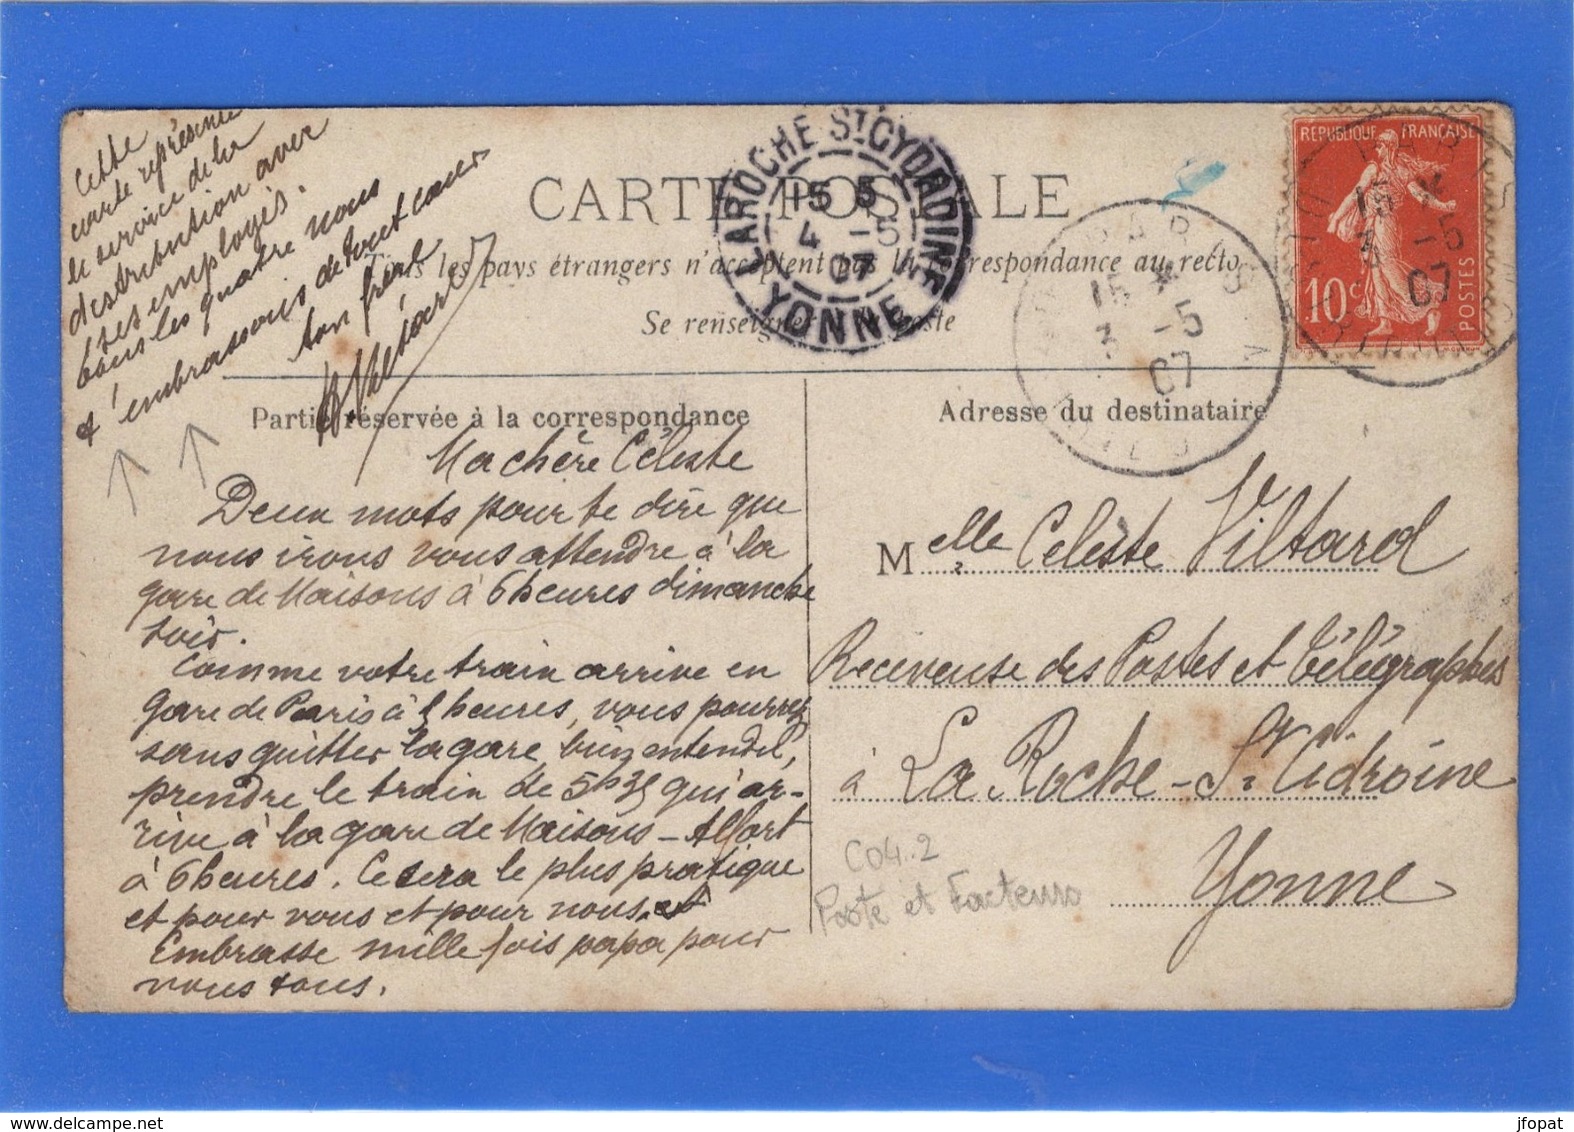 Cette
carte représente
le service de la
distribution avec
ses employés.
tous les quatre nous
t'embrassons de tout cœur
ton frère
Viltard
CARTE POSTALE
Tous les pays étrangers n'acceptent pas la correspondance au recto
Se renseigner à la Poste
LAROCHE ST CYDROINE
15 5
4 -5
07
YONNE
PARIS
15
3 -5
07
REPUBLIQUE FRANÇAISE
10c
POSTES
15
3 -5
07
Partie réservée à la correspondance
Ma chère Céleste
Deux mots pour te dire que
nous irons vous attendre à la
gare de Maisons à 6 heures dimanche
soir.
Comme votre train arrive en
gare de Paris à heures, vous pourrez
sans quitter la gare, bien entendu,
prendre le train de 5h35 qui ar-
rive à la gare de Maisons-Alfort
à 6 heures. Ce sera le plus pratique
et pour vous et pour nous.
Embrasse mille fois papa pour
nous tous.
Adresse du destinataire
Melle Celeste Viltard
Receveuse des Postes et Télégraphes
à La Roche-St Cidroine
Yonne
C04..2
Poste et Facteurs
jfopat